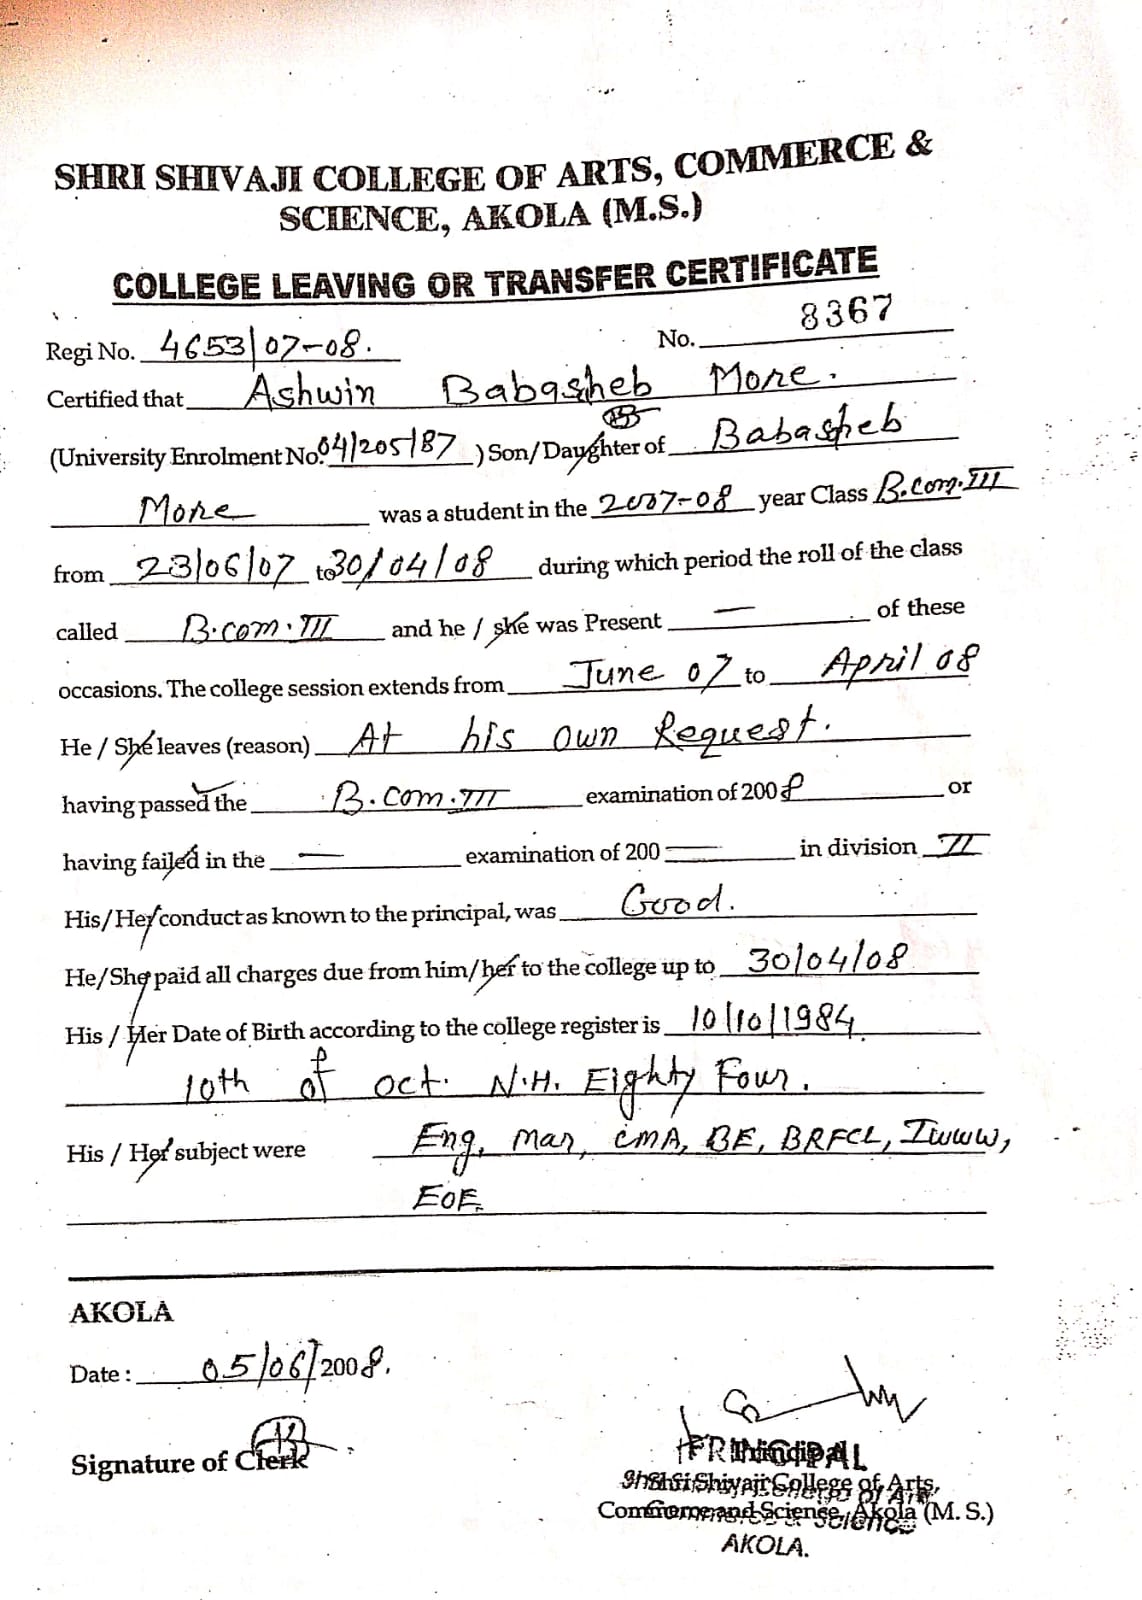 SHRI SHIVAJI COLLEGE OF ARTS, COMMERCE &
SCIENCE, AKOLA (M.S.)
COLLEGE LEAVING OR TRANSFER CERTIFICATE
Regi No. 4653/07-08. No. 8367
Certified that Ashwin Babasheb More.
(University Enrolment No. 04/205/87) Son/Daughter of Babasheb
More was a student in the 2007-08 year Class B.com.III
from 23/06/07 to 30/04/08 during which period the roll of the class
called B.com.III and he / she was Present — of these
occasions. The college session extends from June 07 to April 08
He / She leaves (reason) At his own Request.
having passed the B.com.III examination of 2008 or
having failed in the — examination of 200 — in division II
His/Her conduct as known to the principal, was Good.
He/She paid all charges due from him/her to the college up to 30/04/08
His / Her Date of Birth according to the college register is 10/10/1984.
10th of oct. N.H. Eighty Four.
His / Her subject were Eng, Mar, CMA, BE, BRFCL, Iwww,
EOE.
AKOLA
Date : 05/06/2008.
Signature of Clerk
PRINCIPAL
Shri Shivaji College of Arts,
Commerce and Science, Akola (M.S.)
AKOLA.